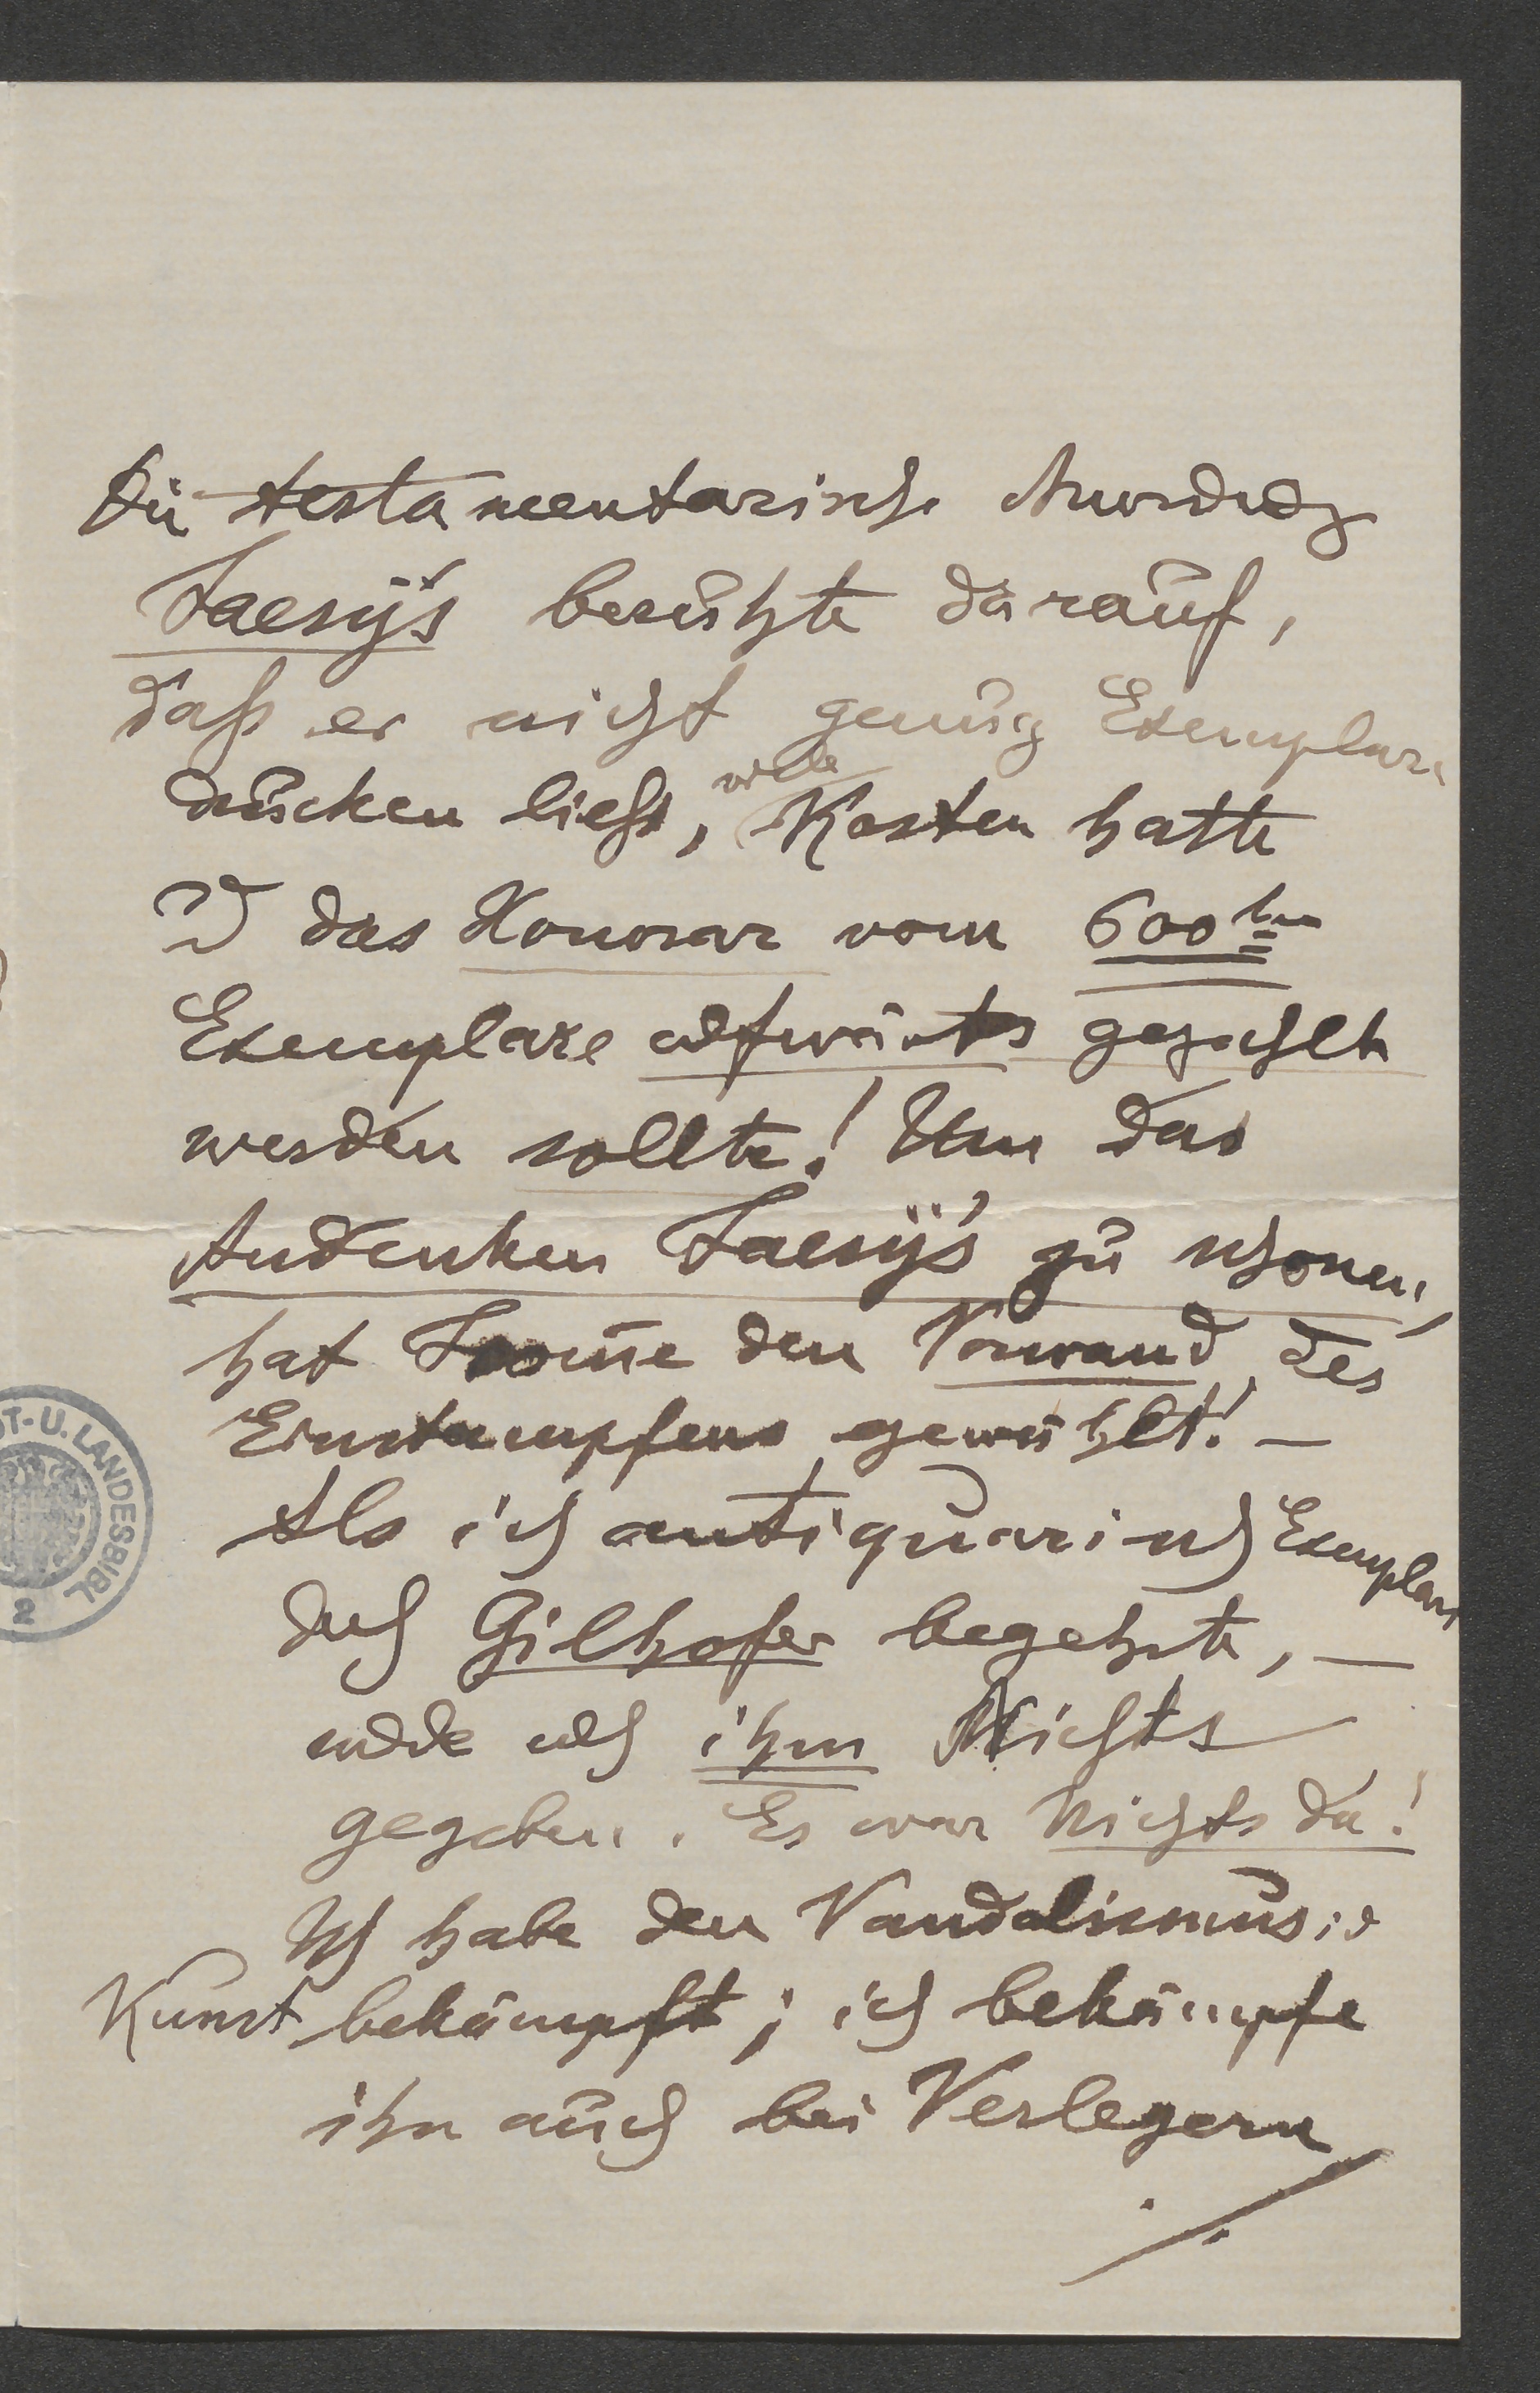 Die testamentarische Anordng
Faesy's beruhte darauf,
daß er nicht genug Exemplare
drucken ließ, viele Kosten hatte
u das Honorar vom 600ten
Exemplare aufwärts gezahlt
werden sollte! Um das
Andenken Faesy's zu schonen,
hat den Vorwand des
Einstampfens gewählt! —
Als ich antiquarisch Exemplare
durch Gilhofer begehrte, —
wurde auch ihm Nichts
gegeben. Es war Nichts da!
Ich habe den Vandalismus i d
Kunst bekämpft; ich bekämpfe
ihn auch bei Verlegern
./.
ST-U. LANDESBIBL
2